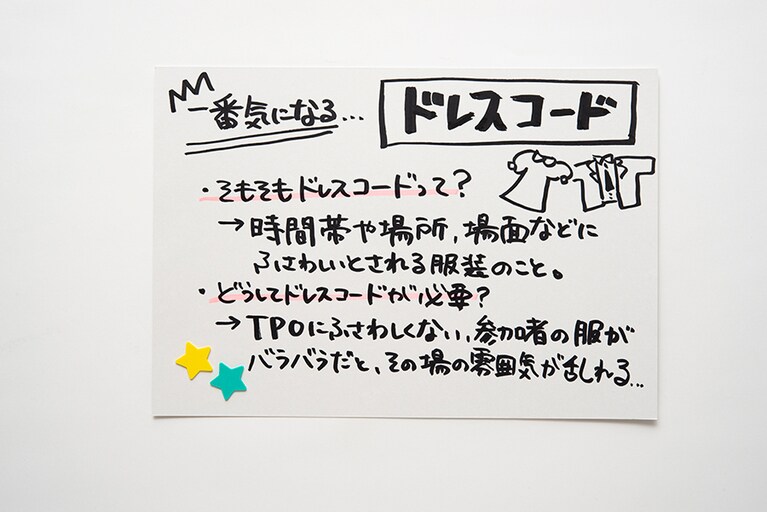 一番気になる…
ドレスコード
・そもそもドレスコードって?
→時間帯や場所,場面などに
ふさわしいとされる服装のこと。
・どうしてドレスコードが必要?
→TPOにふさわしくない、参加者の服が
バラバラだと、その場の雰囲気が乱れる…